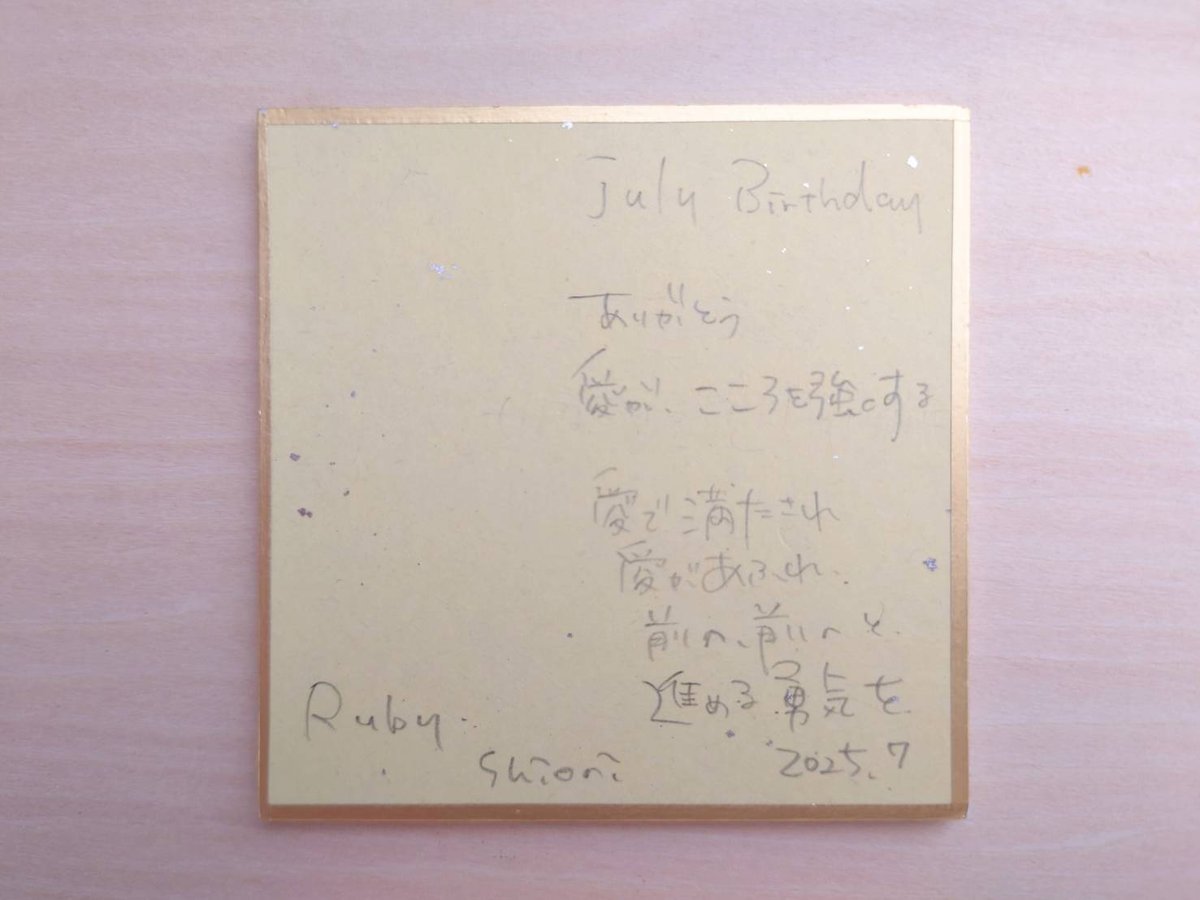 July Birthday
ありがとう
愛が、こころを強くする
愛で満たされ
愛があふれ、
前へ、前へと、
進める勇気を
Ruby.
Shiori
2025.7